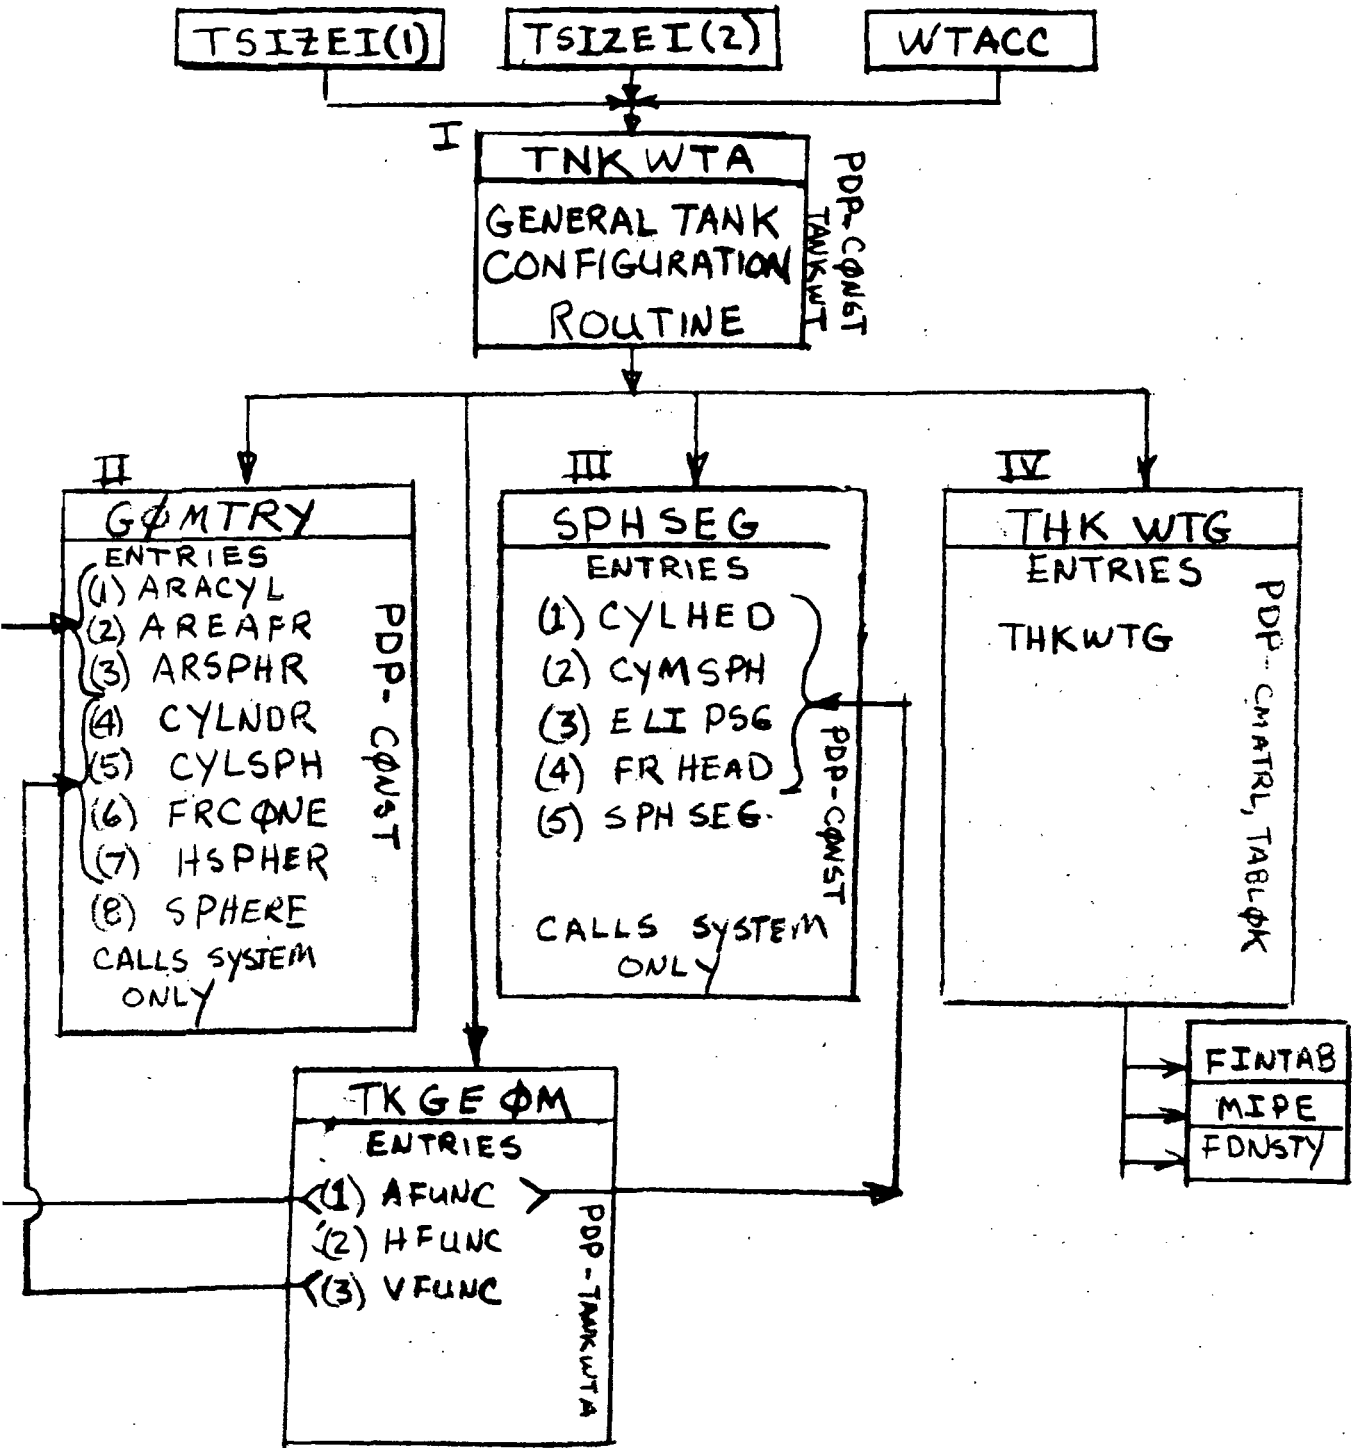 TSIZEI(1)
TSIZEI(2)
WTACC
I
TNKWTA
GENERAL TANK
CONFIGURATION
ROUTINE
PDP-CØNST
TANKWT
II
GØMTRY
ENTRIES
(1) ARACYL
(2) AREAFR
(3) ARSPHR
(4) CYLNDR
(5) CYLSPH
(6) FRCØNE
(7) HSPHER
(8) SPHERE
CALLS SYSTEM
ONLY
PDP-CØNST
III
SPHSEG
ENTRIES
(1) CYLHED
(2) CYMSPH
(3) ELIPSG
(4) FRHEAD
(5) SPHSEG.
CALLS SYSTEM
ONLY
PDP-CØNST
IV
THK WTG
ENTRIES
THKWTG
PDP-CMATRL, TABLØK
FINTAB
MIPE
FDNSTY
TKGEØM
ENTRIES
(1) AFUNC
(2) HFUNC
(3) VFUNC
PDP-TANKWTA